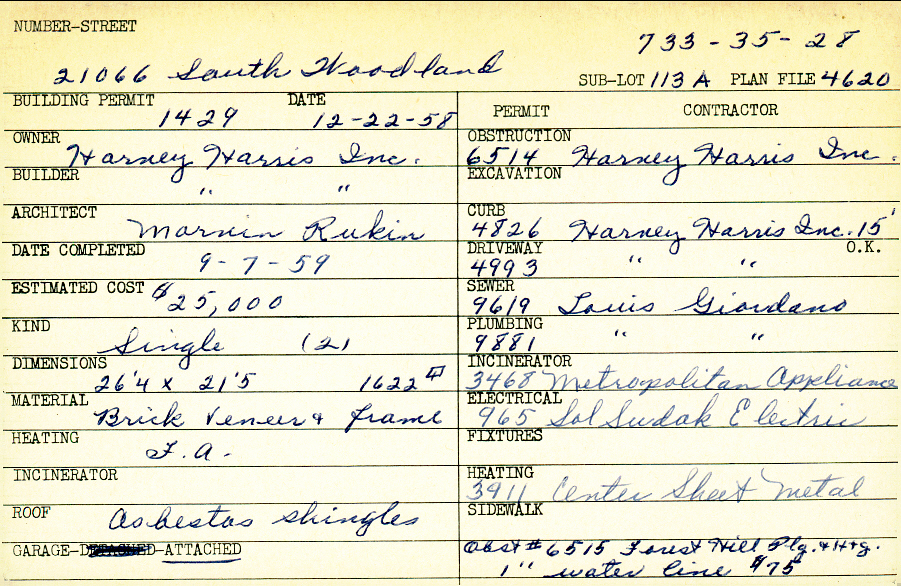 NUMBER-STREET
733-35-28
21066 South Woodland
SUB-LOT 113A PLAN FILE 4620
BUILDING PERMIT DATE
1429 12-22-58
PERMIT CONTRACTOR
OWNER
Harney Harris Inc.
OBSTRUCTION
6514 Harney Harris Inc.
BUILDER
" "
EXCAVATION
ARCHITECT
Marvin Rukin
CURB
4826 Harney Harris Inc. 15'
DATE COMPLETED
9-7-59
DRIVEWAY O.K.
4993 " "
ESTIMATED COST $25,000
SEWER
9619 Louis Giordano
KIND
Single (2)
PLUMBING
9881 " "
DIMENSIONS
26'4 x 21'5 1622
INCINERATOR
3468 Metropolitan Appliance
MATERIAL
Brick Veneer & frame
ELECTRICAL
965 Sol Sudak Electric
HEATING
F.A.
FIXTURES
INCINERATOR
HEATING
3911 Center Sheet Metal
ROOF
Asbestos shingles
SIDEWALK
GARAGE-DETACHED-ATTACHED
Obst # 6515 Forest Hill Plg. & Htg.
1" water line $75